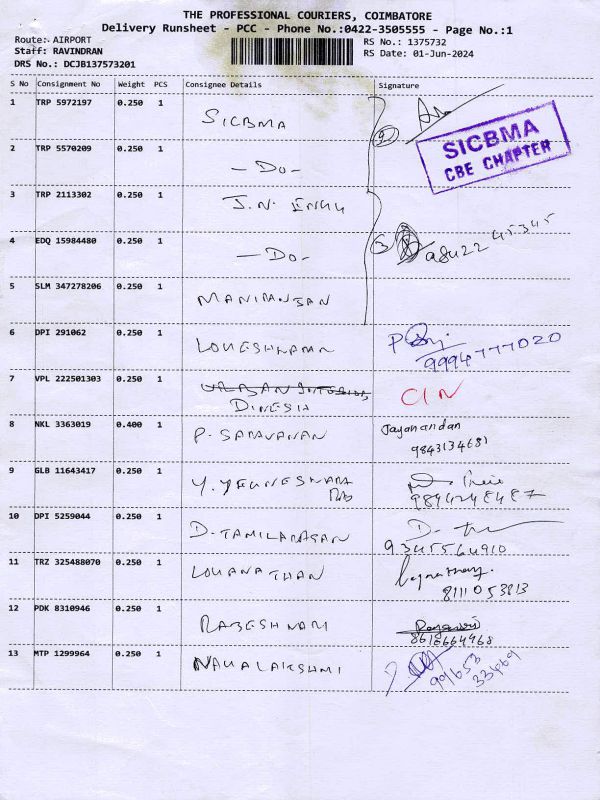 THE PROFESSIONAL COURIERS, COIMBATORE
Delivery Runsheet - PCC - Phone No.:0422-3505555 - Page No.:1
Route: AIRPORT
Staff: RAVINDRAN
DRS No.: DCJB137573201
RS No.: 1375732
RS Date: 01-Jun-2024
S No Consignment No Weight PCS Consignee Details Signature
1 TRP 5972197 0.250 1 SICBMA
SICBMA
CBE CHAPTER
2 TRP 5570209 0.250 1 -Do-
3 TRP 2113302 0.250 1 J.N.
4 EDQ 15984480 0.250 1 -Do-
5 SLM 347278206 0.250 1
6 DPI 291062 0.250 1 9994777020
7 VPL 222501303 0.250 1 DINESH
8 NKL 3363019 0.400 1 P. SARAVANAN Jayanandan
9843134681
9 GLB 11643417 0.250 1
10 DPI 5259044 0.250 1 D. TAMILARASAN
9345564910
11 TRZ 325488070 0.250 1 LOGANATHAN
8111053813
12 PDK 8310946 0.250 1
13 MTP 1299964 0.250 1